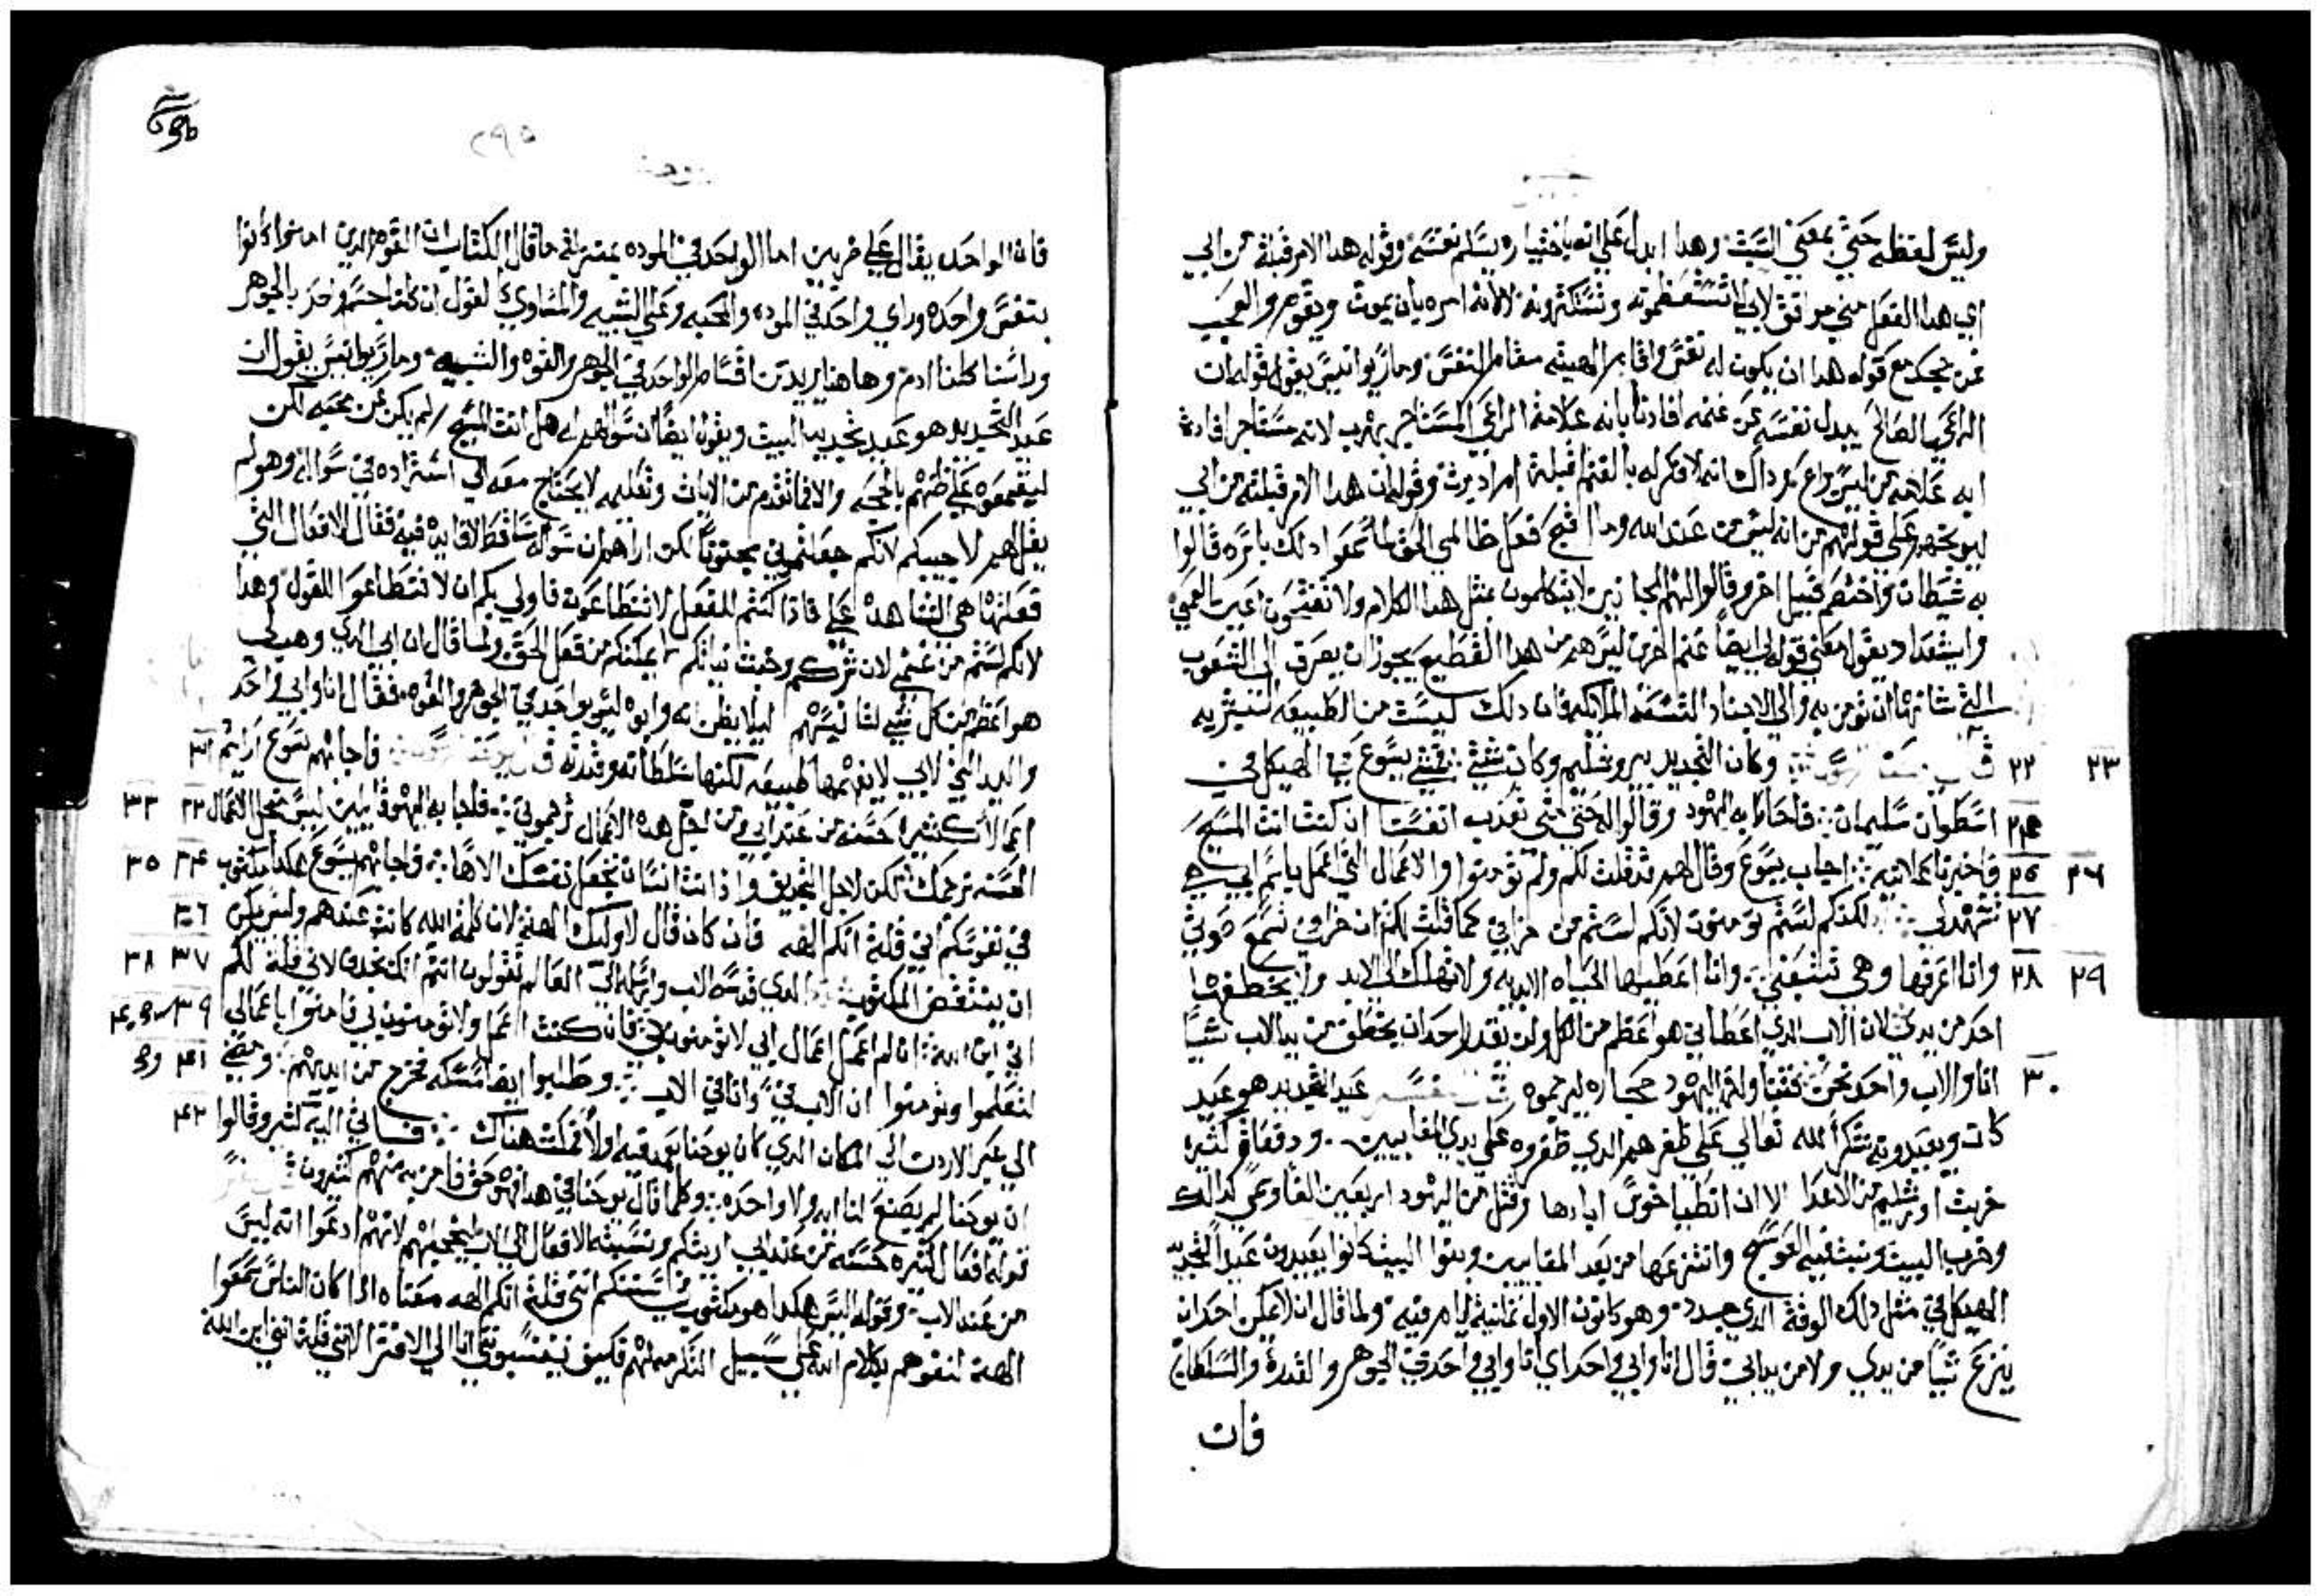 وليس لفظه حتي بمعني السبت وهدا ابدل علي انه باختياره يسلم نفسه وقوله هدا الامر قبلته من ابي
اي هدا الفعل مني موافق لابي لا تستعظمونه وتستنكرونه لا لانه امره بان يموت ويقوم والعجب
ممن يجحد مع قوله هدا ان يكون له نفس واقام الهيته مقام النفس وماريوانيس يقول قوله ان
الراعي الصالح يبدل نفسه عن غنمه افادنا بانه علامة الراعي المستاجر يهرب لانه مستاجر افادنا
ابه علامه من ليس براع بمرداك انه لا فكر له بالغنم قبلة امرا دبرت وقوله ان هدا الامر قبلته من ابي
ليوبخهم علي قولهم من انه ليس من عند الله وما اقبح فعل ظالمي الحق لما سمعوا دلك باسره قالوا
به شيطان واختصم قبيل اخر وقالوا لهم المجانين لا يتكلمون بمثل هدا الكلام ولا تفتحون اعين العمي
وايشعداد يقول معني قوله لي ايضا غنم اخري ليس هم من هدا القطيع يجوز ان يصرف الي الشعوب
التي شانها ان تومن به والي الاجناد التسعه الملائكه فان دلك ليست من الطبيعه البشريه
٢٢ ٢٣ وكان التجديد بيروشليم وكان شتي يتمشي يسوع في الهيكل في
٢٤ اسطوان سليمان فاحاط به اليهود وقالوا له حتي متي تعدب انفسنا ان كنت انت المسيح
٢٥ ٢٦ فاخبرنا علانيه اجاب يسوع وقال لهم قد قلت لكم ولم تومنوا والاعمال التي اعمل باسم ابي هي
٢٧ تشهد لي لكنكم لستم تومنون لانكم لستم من خرافي كما قلت لكم ان خرافي تسمع صوتي
٢٨ ٢٩ وانا اعرفها وهي تتبعني وانا اعطيها الحياه الابديه ولا تهلك الي الابد ولا يخطفها
احد من يدي لان الاب الدي اعطاني هو اعظم من الكل ولن يقدر احد ان يخطف من يد الاب شيا
٣٠ انا والاب واحد نحن فتناول اليهود حجاره ليرجموه عيد التجديد هو عيد
كان ويعيدونه شكرا لله تعالي علي ظفرهم الدي ظفروه علي يدي المقابيين ودفعات كثيره
خربت اورشليم من الاعدا الا ان انطياخوس ابادها وقتل من اليهود اربعين الفا وسبي كدالك
وخرب البيت وانتزعها من بعد المقابيين وبنوا البيت كانوا يعيدون عيد التجديد
الهيكل في مثل دلك الوقت الدي جدد وهو كانون الاول ثمانية ايام فيه ولما قال ان لا يمكن احد ان
ينزع شيا من يدي ولا من يد ابي قال انا وابي واحد اي انا وابي واحد في الجوهر والقدرة والسلطان
فان
٢٩٥
فان الواحد يقال علي ضربين اما الواحد في الموده بمنزلة ما قال الكتاب ان القوم الدين امنوا كانوا
بنفس واحده وراي واحد في الموده والمحبه وعلي الشبيه والمساوي كما نقول ان كلنا جسم واحد بالجوهر
وراسنا كلنا ادم وهاهنا يريد من اقسام الواحد في الجوهر والقوه والشبيه وماريوانيس يقول ان
عيد التجديد هو عيد تجديد البيت ويقول ايضا ان سوالهم له هل انت المسيح لم يكن عن محبه لكن
ليقمعوه علي ظنهم بالحجه والا فما تقدم من الايات وتعليمه لا يحتاج معه الي استزاده في سواله وهو لم
يقل لهم لا اجيبكم لانكم جعلتموني مجنونا لكن اراهم ان سوالهم ساقط لا فايده فيه فقال الافعال التي
فعلتها هي الشاهده علي فادا كنتم للفعل لا تتطاعون فاولي بكم ان لا تتطاعوا للقول وهدا
لانكم لستم من غنمي لان شركم وخبث نياتكم لا يمكنكم من فعل الحق ولما قال ان ابي الدي وهب لي
هو اعظم من كل شي لنا نيسهم ليلا يظن انه وابوه ليسو بواحد في الجوهر والقوه فقال انا وابي واحد
واليد التي لابي لا يفهمها طبيعه لكنها سلطانه وقدرته فاجابهم يسوع اريتكم ٣٢
اعمالا كثيره حسنه من عند ابي فمن اجل هده الاعمال ترجموني فاجابه اليهود قايلين ليس من اجل الاعمال ٣٣
الحسنه نرجمك لكن لاجل التجديف واذ انت انسان تجعل نفسك الاها فاجابهم يسوع هكدا مكتوب ٣٤ ٣٥
في نفوسكم اني قلت انكم الهه فان كان قال لاوليك الهه لان كلمة الله كانت عندهم وليس يمكن ٣٦
ان ينتقض المكتوب الدي قدسه الاب وارسله الي العالم تقولون انتم انك تجدف لاني قلت لكم ٣٧ ٣٨
اني ابن الله ان لم اعمل اعمال ابي لا تومنون بي فان كنت اعمل ولا تومنون بي فامنوا باعمالي ٣٩
لتعلموا وتومنوا ان الاب في وانا في الاب وطلبوا ايضا مسكه فخرج من ايديهم ومضي ٤١
الي عبر الاردن الي المكان الدي كان يوحنا يعمد فيه اولا فمكث هناك فاتي اليه كثير وقالوا ٤٢
ان يوحنا لم يصنع لنا ايه ولا واحده وكلما قال يوحنا في هدا فهو حق فامن به منهم كثيرون
قوله افعال كثيره حسنه من عند ابي اريتكم ونسبته الافعال الي الاب لانهم ادعوا انه ليس
من عند الاب وقوله اليس هكدا هو مكتوب في سنتكم انني قلت انكم الهه معناه ادا كان الناس سمعوا
الهه لتفوههم بكلام الله علي سبيل التكرمه لهم فكيف تنسبوني انا الي الافترا لانني قلت انني ابن الله